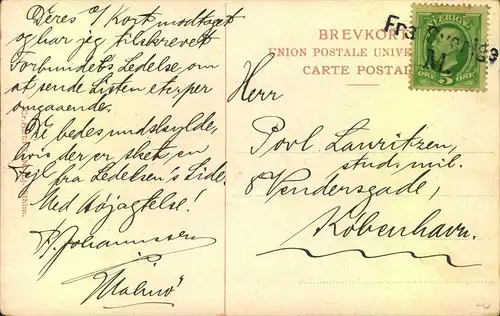 Deres s/ Kort modtaget
og har jeg tilskrevet
Forbundets Ledelse om
at sende Listen eterper
omgaaende.
De bedes undskylde,
hvis der er sket en
Fejl fra Ledelsen's Side.
Med Højagtelse!
P. Johannssen
Malmö
BREVKORT
UNION POSTALE UNIVE
CARTE POSTA
SVERIGE
ÖRE 5 ÖRE
Fra Sverige
M.
Herr
Povl Lauritzen,
stud. mil.
8 Vendersgade,
København.